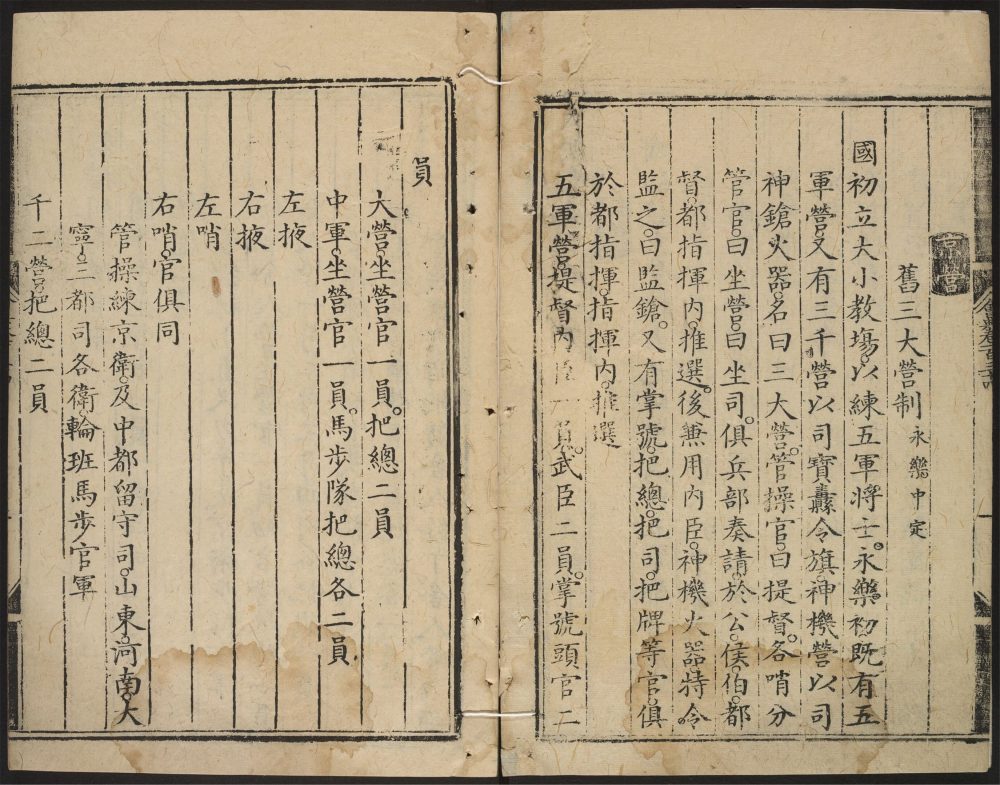 京營
舊三大營制永樂中定
國初立大小教場。以練五軍將士。永樂初既有五
軍營。又有三千營以司寶纛令旗。神機營以司
神鎗火器。名曰三大營。管操官。曰提督。各哨分
管官。曰坐營。曰坐司。俱兵部奏請。於公。侯。伯。都
督。都指揮內。推選。後兼用內臣。神機火器。特令
監之。曰監鎗。又有掌號。把總。把司。把牌等官。俱
於都指揮。指揮內。推選
五軍營。提督內臣一員。武臣二員。掌號頭官二
員
大營坐營官一員。把總二員
中軍。坐營官一員。馬步隊把總各二員
左掖
右掖
左哨
右哨。官俱同
管操練京衛。及中都留守司。山東。河南。大
寧。三都司各衛。輪班馬步官軍
千二營。把總二員